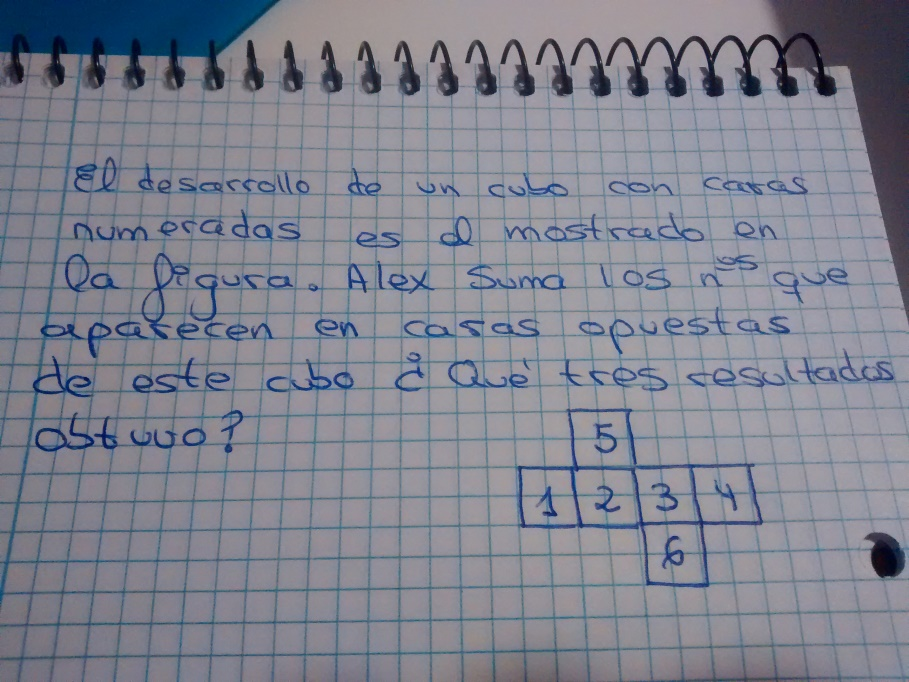 El desarrollo de un cubo con caras
numeradas es el mostrado en
la figura. Alex suma los nos que
aparecen en caras opuestas
de este cubo ¿Qué tres resultados
obtuvo?
5
1 2 3 4
6